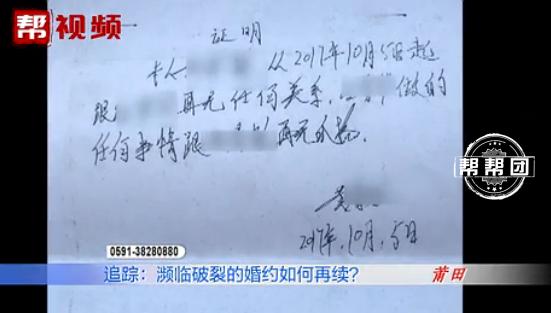 帮视频
证明
本人 从2017年10月5日起
跟 再无任何关系, 做的
任何事情跟 再无
帮帮团
2017年,10月,5日
0591-38280880
追踪：濒临破裂的婚约如何再续？
莆田